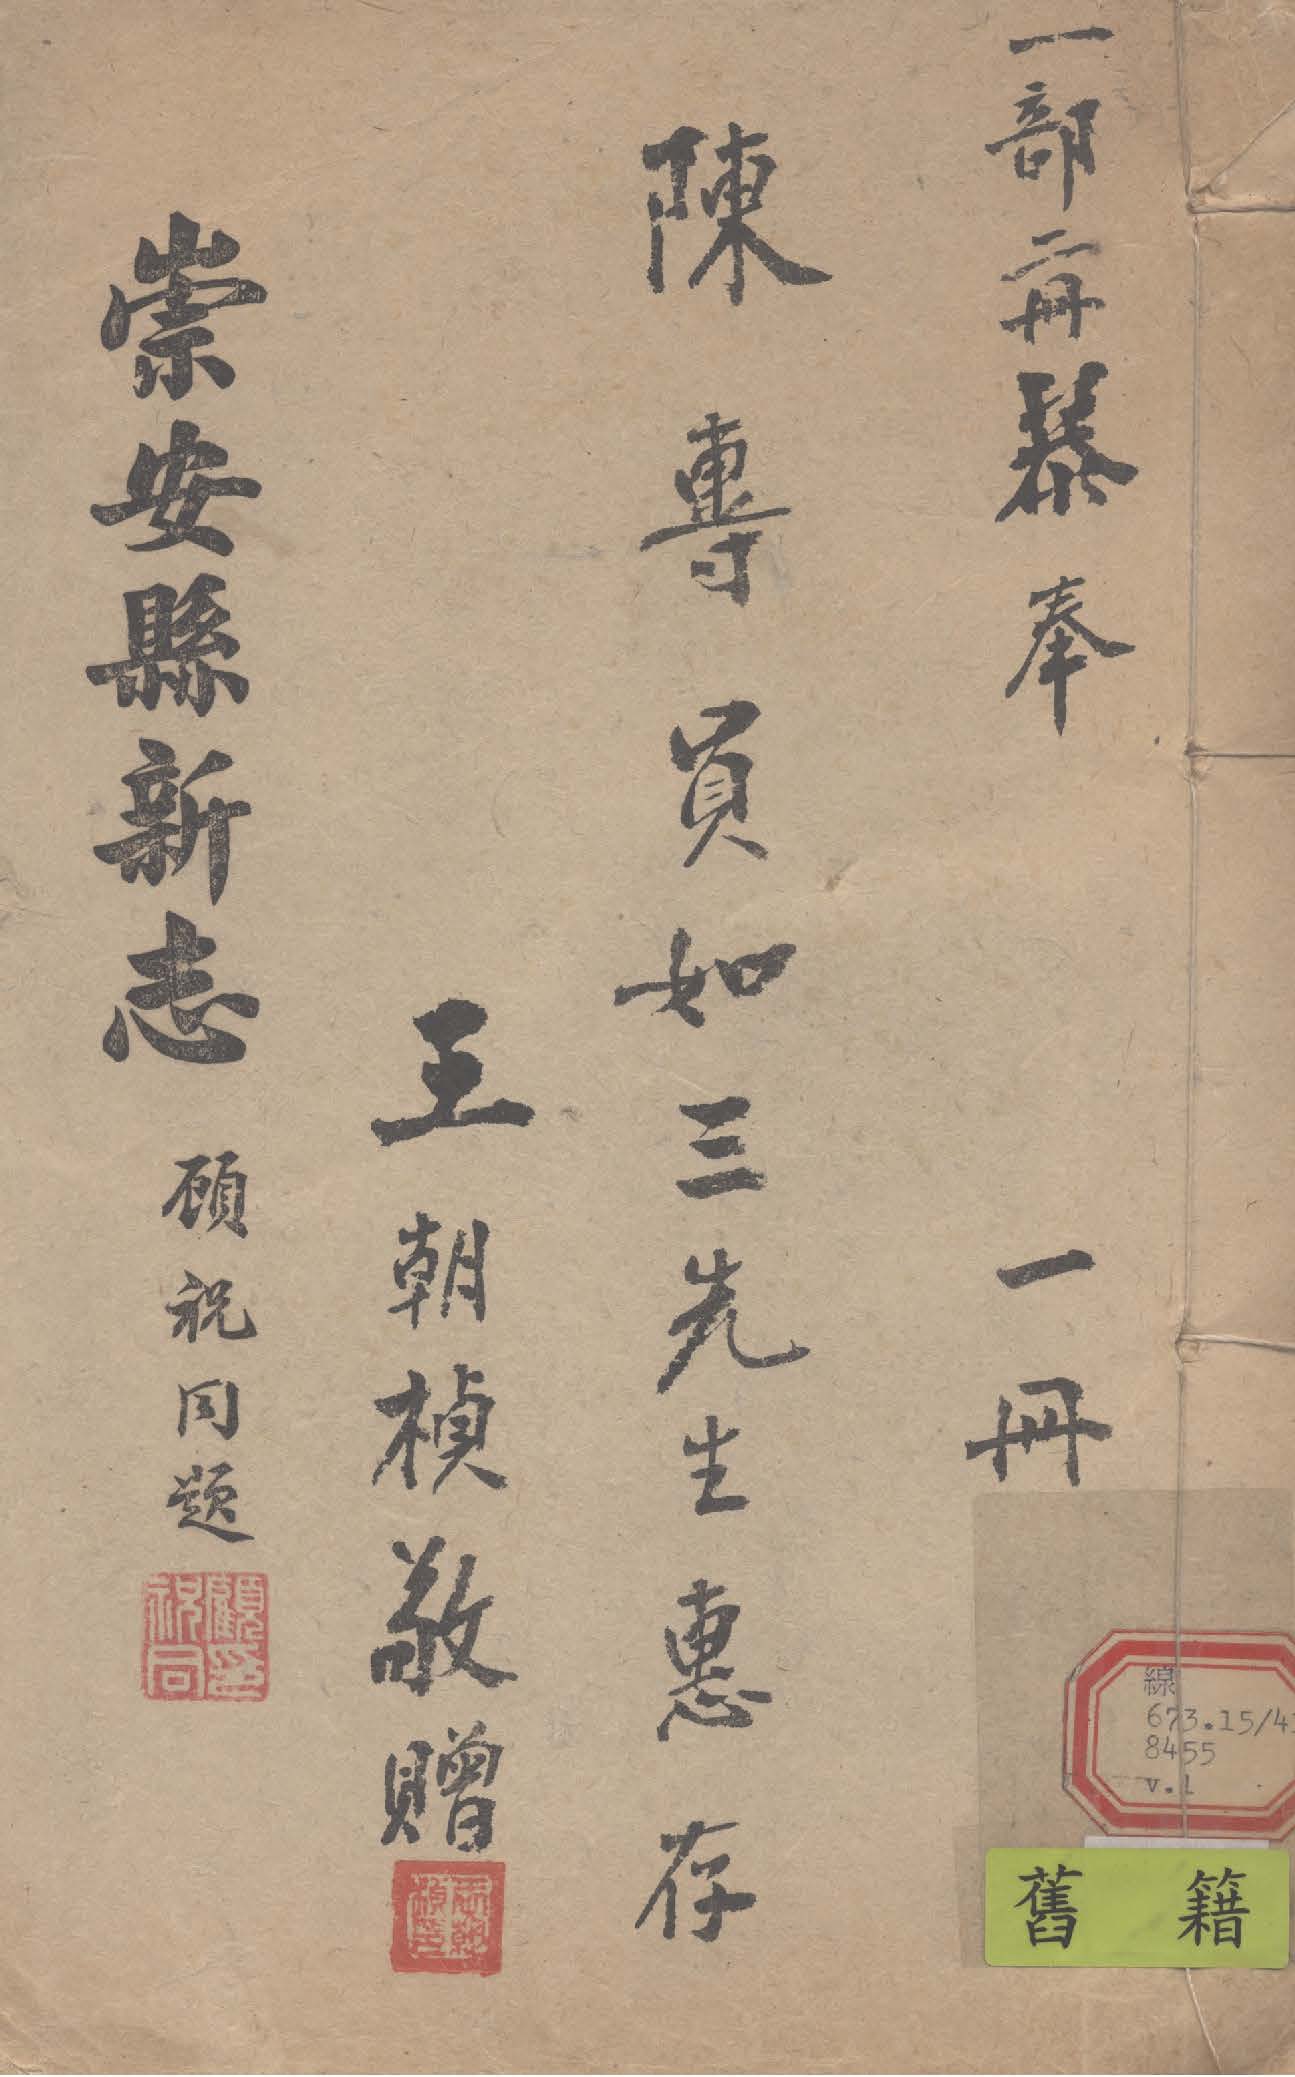 一部二冊 奉 一冊
陳專員如三先生惠存
王朝楨敬贈
崇安縣新志
顾祝同题
顧祝同印
線
673.15/4
8455
v.1
舊籍